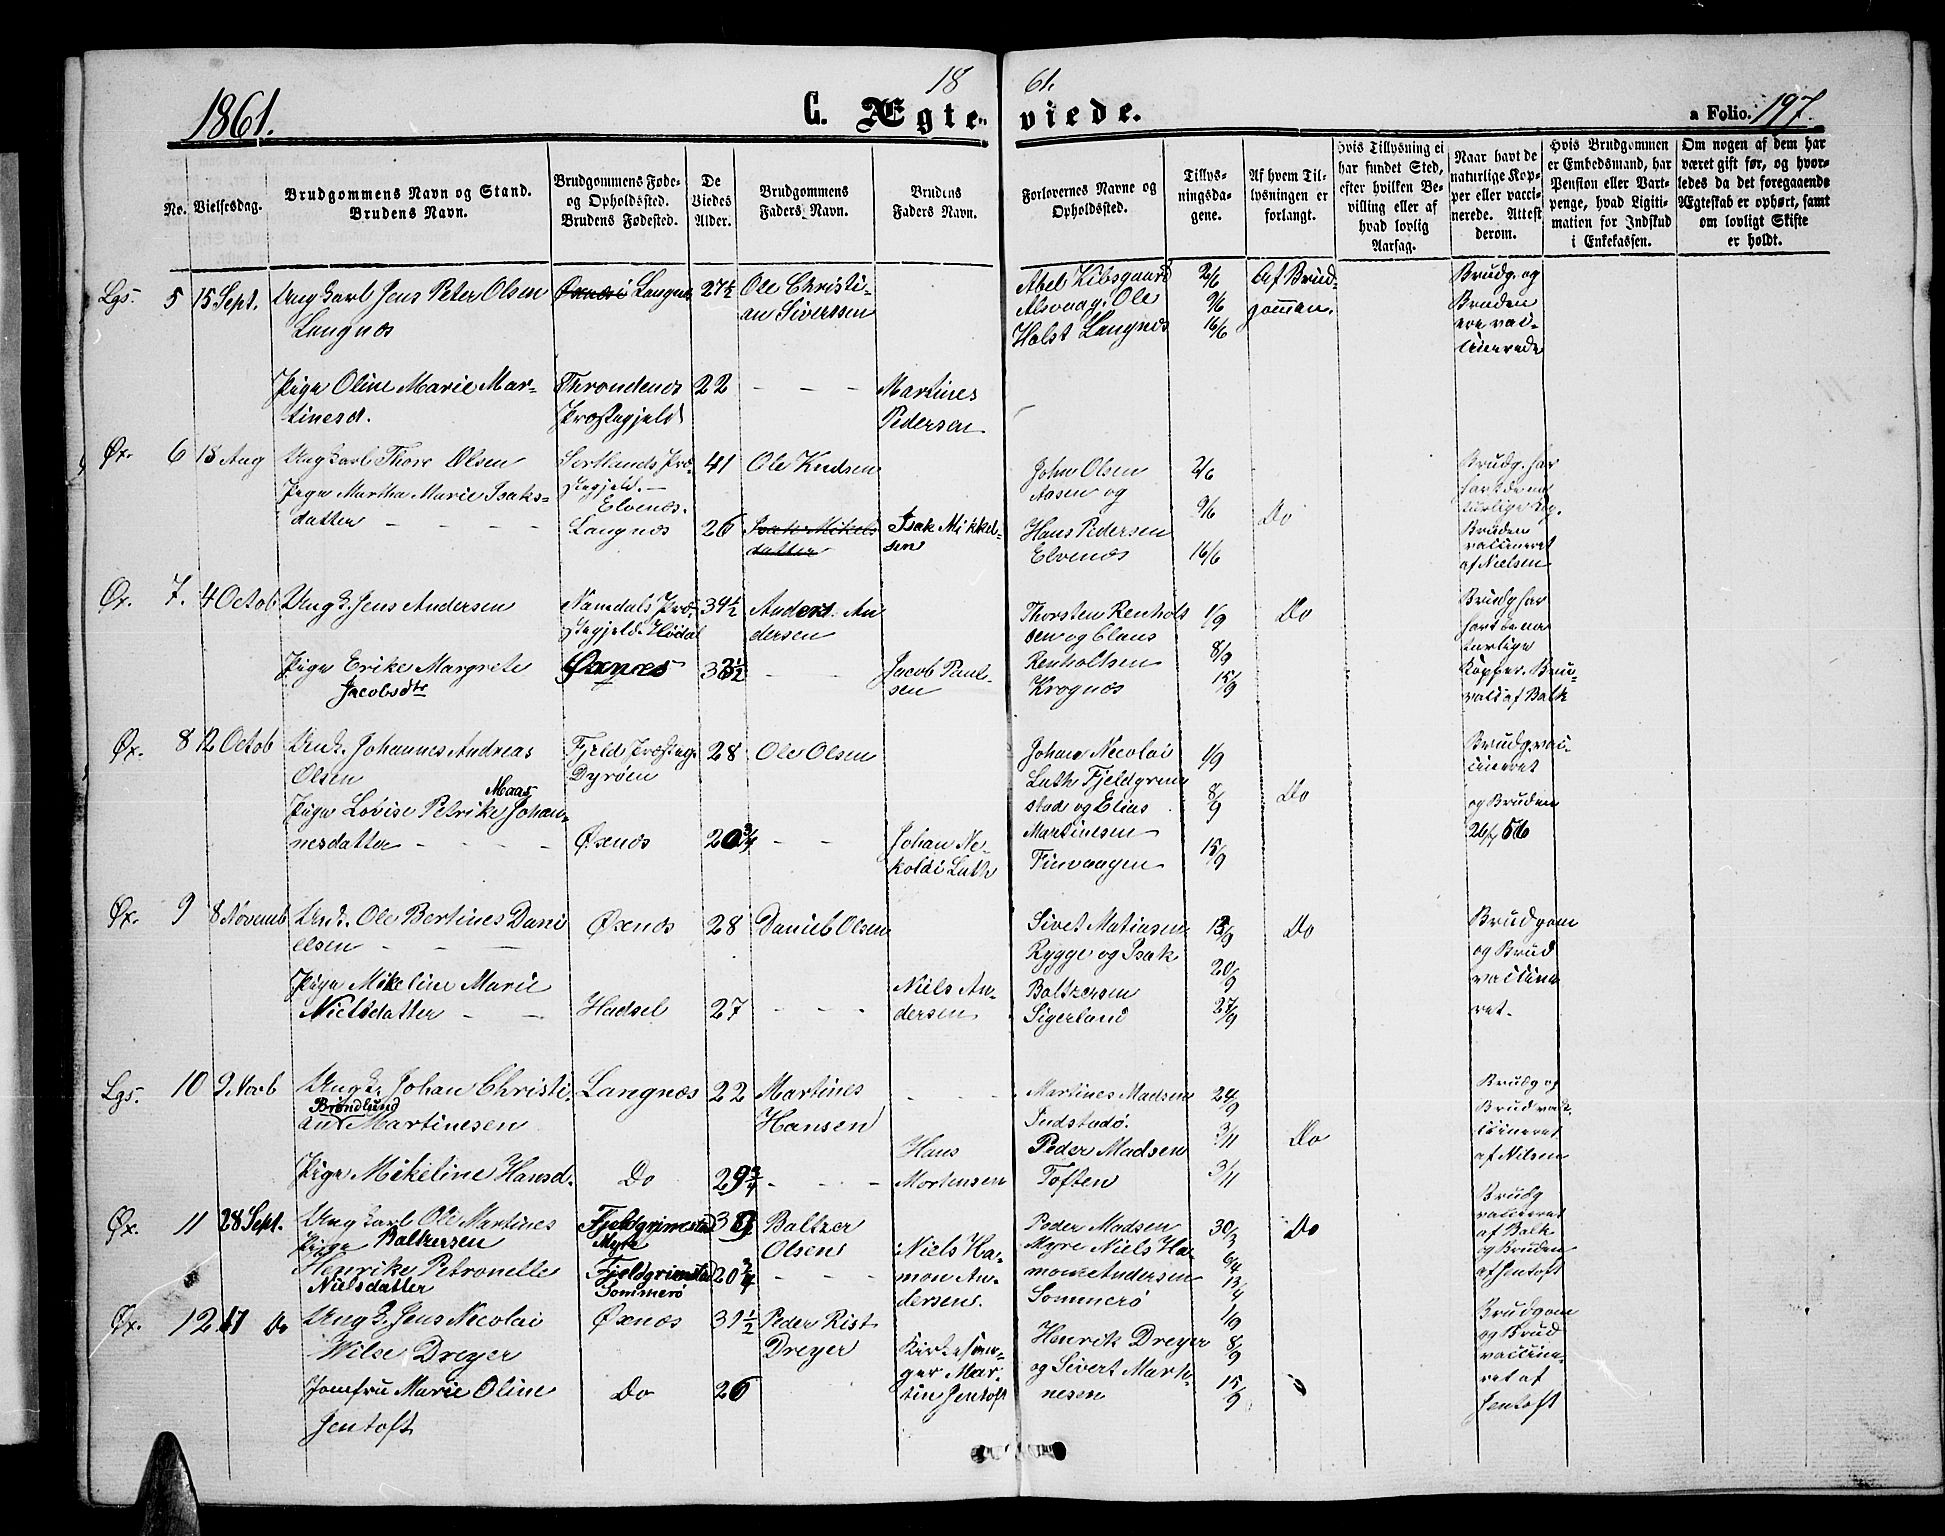 18 61.
1861.
C. Ægteviede.
a Folio. 197.
No.
Vielsesdag.
Brudgommens Navn og Stand.
Brudens Navn.
Brudgommens Føde-
og Opholdssted.
Brudens Fødested.
De
Viedes
Alder.
Brudgommens
Faders Navn.
Brudens
Faders Navn.
Forlovernes Navne og
Opholdssted.
Tillys-
ningsda-
gene.
Af hvem Til-
lysningen er
forlangt.
Hvis Tillysning ei
har fundet Sted,
efter hvilken Be-
villing eller af
hvad lovlig
Aarsag.
Naar havt de
naturlige Kop-
per eller vacci-
nerede. Attest
derom.
Hvis Brudgommen
er Embedsmand, har
Pension eller Vart-
penge, hvad Ligiti-
mation for Indskud
i Enkekassen.
Om nogen af dem har
været gift før, og hvor-
ledes da det foregaaende
Ægteskab er ophørt, samt
om lovligt Skifte
er holdt.
Lgs. 5 15 Sept.
Ungkarl Jens Peter Olsen
Langnæs
Øxnæs Langnæs
27½
Ole Christi-
an Sivertsen
Abel Kibsgaard
Alsvaag. Ole
Holst Langnæs
2/6
9/6
16/6
Af Brud-
gommen.
Brudg. og
Bruden
ere vac-
cinerede
Pige Oline Marie Mar-
tinesd.
Throndenæs
Præstegjeld
22 - - -
Martines
Pedersen
Øx. 6 18 Aug
Ungkarl Thore Olsen
Sortlands Præ-
stegjeld. -
Elvenæs.
41
Ole Knudsen
John Olsen
Aasen og
Hans Pedersen
Elvenæs
2/6
9/6
16/6
Do
Brudg. har
havt de na
turlige Kop.
Bruden
vaccineret
af Nielsen
Pige Martha Marie Isaks-
datter - - -
Langnæs
26
Isak Mikels
datter
Isak Mikkel-
sen
Øx. 7. 4 Octob
Ung k. Jens Andersen
Namdals Præ-
stegjeld. Hødal
34½
Anders. An
dersen
Thorsten Renholt
sen og Claus
Renholtsen
Krognæs
1/9
8/9
15/9
Do
Brudg har
havt de na
turlige
Kopper. Bru-
vacc af Balk
Pige Erike Margrete
Jacobsdtr
Øxnæs
33½ - -
Jacob Paul-
sen
Øx. 8 12 Octob
Unk. Johannes Andreas
Olsen
Fjeld Præsteg.
Dyrøen
28
Ole Olsen
Johan Necolai
Luth Fjeldgrim
stad og Elias
Martinesen
Tinvaagen
1/9
8/9
15/9
Do
Brudg. vac-
cineret
og Bruden
26/7 56
Maas
Pige Lovise Petrike Johan-
nesdatter - - -
Øxnæs
20¾ - -
Johan Ne-
kolai Luth
Øx. 9 8 Novemb
Unk. Ole Bertines Dani
elsen - - -
Øxnæs
28
Daniel Olsen
Sivet Matinsen
Rygge og Isak
Baltzersen
Sigerland
13/9
20/9
27/9
Do
Brudgom
og Brud
vaccine
ret.
Pige Mikeline Marie
Nielsdatter - -
Hadsel
27 - - -
Niels An-
dersen
Lgs. 10 9 Novb
Ung k. Johan Christi-
Brøndlund
an Martinesen
Langnæs
22
Martines
Hansen
- - -
Martines Madsen
Indstadø.
Peder Madsen
Toften
24/9
3/11
3/11
Do
Brudg og
Brud vak-
cineret
af Nilsen
Pige Mikeline Hansd.
Do
29¾ - - -
Hans
Mortensen
Øx. 11 28 Sept.
Ungkarl Ole Martines
Baltzersen
Fjeldgrimestad
Myre
Baltzer
Olsen
Peder Madsen
Myre Niels Ha-
mon Andersen
Sommerø
30/3
6/4
13/4
Do
Brudg
vaccineret
af Balk
og Bruden
af Jentoft
Pige
Henrike Petronelle
Nielsdatter
Fjeldgrimstad
Sommerø
20¾ - - -
Niels Ha-
mon An-
dersen.
Øx. 12 17 Do
Ung k. Jens Necolai
Wilse Dreyer
Øxnæs
31½
Peder Rist
Dreyer
Henrik Dreyer
og Sivert Marti-
nesen
1/9
8/9
15/9
Brudgom
og Brud
vaccine-
ret af
Jentoft
Jomfru Marie Oline
Jentoft
Do
26 - - -
Kirkesan-
ger Mar-
tin Jentoft